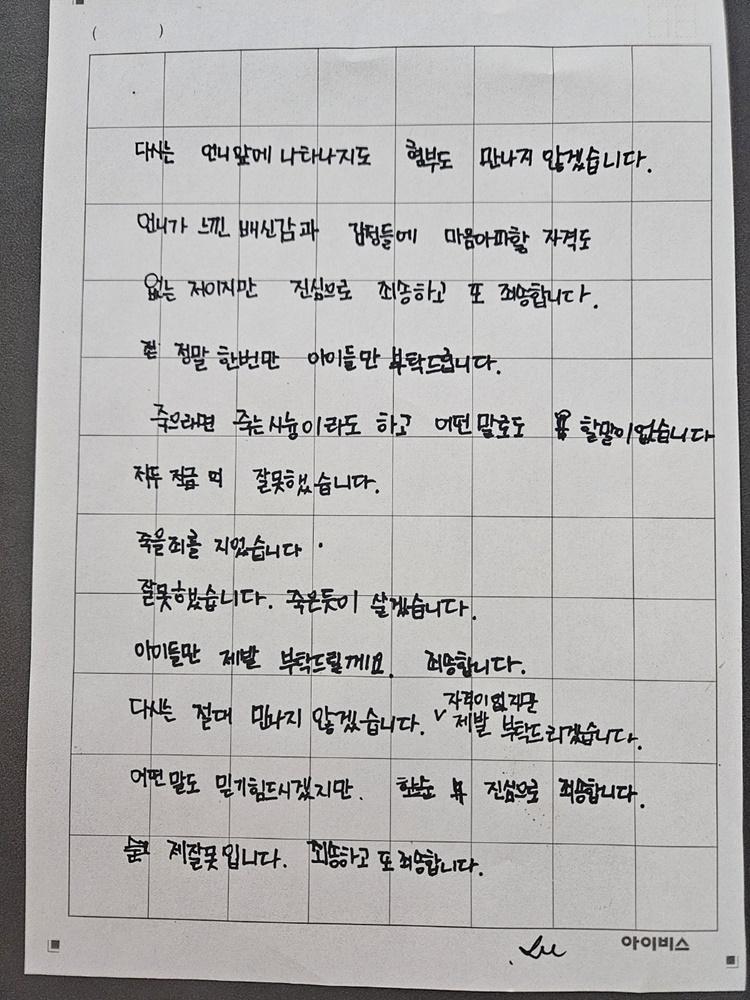 ( )
다시는 언니앞에 나타나지도 형부도 만나지 않겠습니다.
언니가 느낀 배신감과 감정들에 마음아파할 자격도
없는 저이지만 진심으로 죄송하고 또 죄송합니다.
정말 한번만 아이들만 부탁드립니다.
죽으라면 죽는시늉이라도 하고 어떤말로도 할말이없습니다
잘못했습니다.
죽을죄를 지었습니다.
잘못했습니다. 죽은듯이 살겠습니다.
아이들만 제발 부탁드릴게요. 죄송합니다.
다시는 절대 만나지 않겠습니다. ∨ 자격이없지만 제발 부탁드리겠습니다.
어떤말도 믿기힘드시겠지만. 진심으로 죄송합니다.
제잘못입니다. 죄송하고 또 죄송합니다.
아이비스